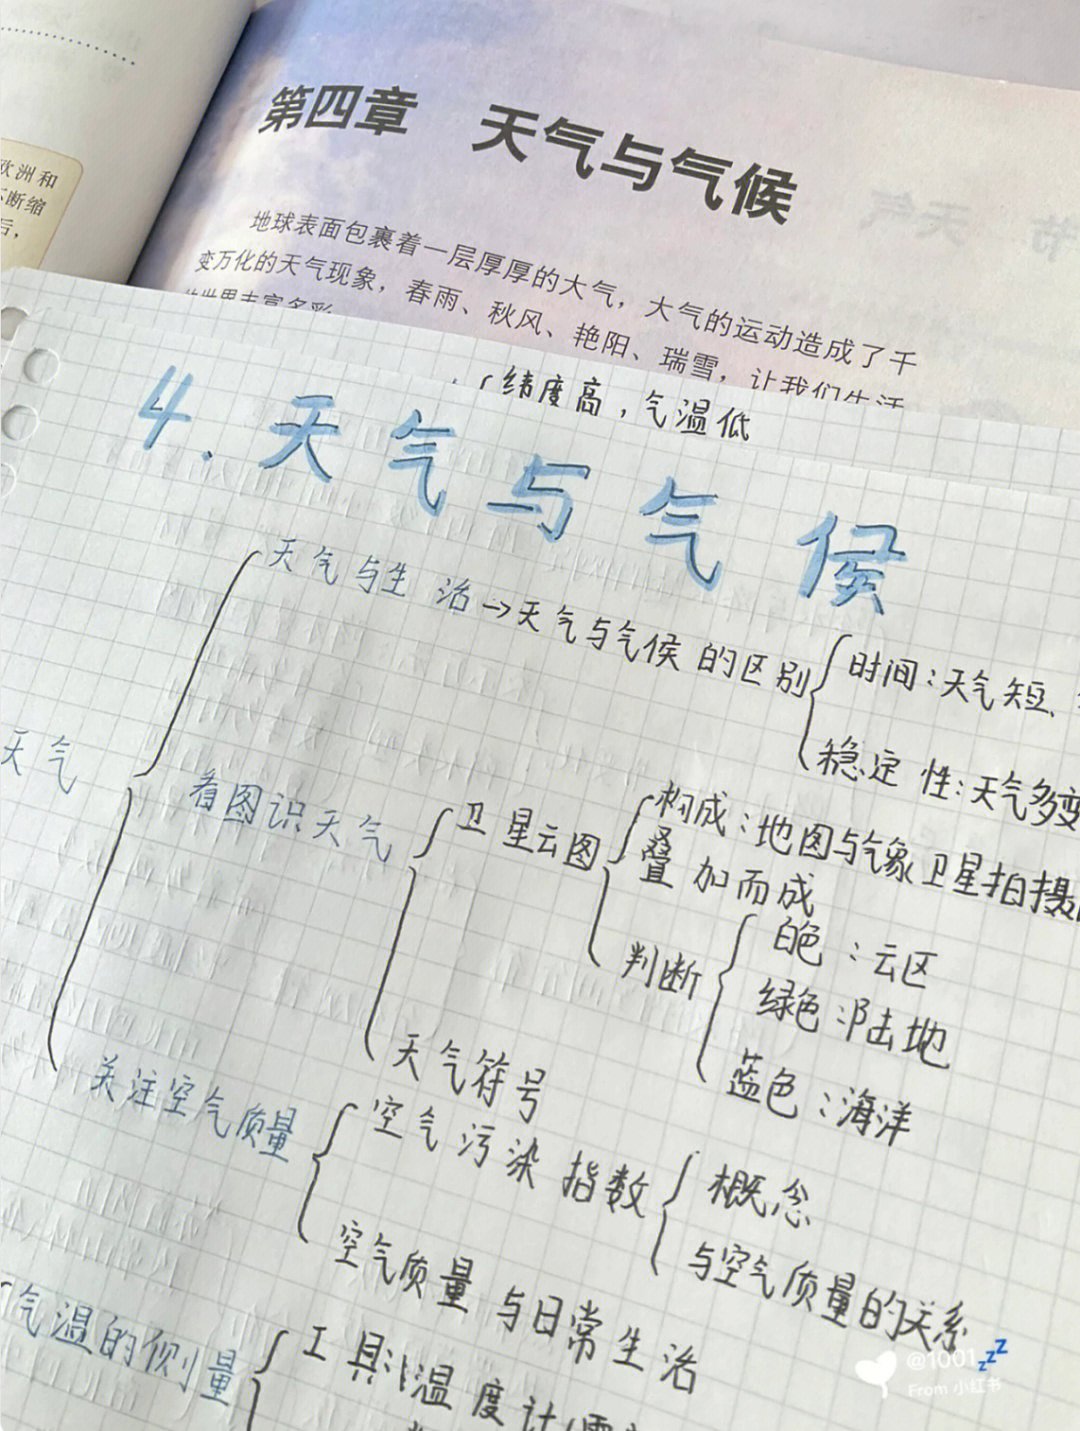 欧洲和
不断缩
后，
第四章 天气与气候
节 天气
地球表面包裹着一层厚厚的大气，大气的运动造成了千
变万化的天气现象，春雨、秋风、艳阳、瑞雪，让我们生活
的世界丰富多彩
纬度高，气温低
4.天气与气候
天气与生活→天气与气候的区别
时间：天气短、
稳定性：天气多变
天气
看图识天气
卫星云图
构成：地图与气象卫星拍摄
叠加而成
判断
白色：云区
绿色：陆地
蓝色：海洋
天气符号
关注空气质量
空气污染指数
概念
与空气质量的关系
空气质量与日常生活
气温的测量
工具：温度计
@1001 zzz
From 小红书